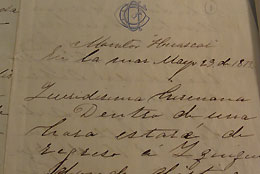 Monitor Huascar
En la mar Mayo 23 de 18
Queridisima Hermana
Dentro de una
hora estaré de
regreso á